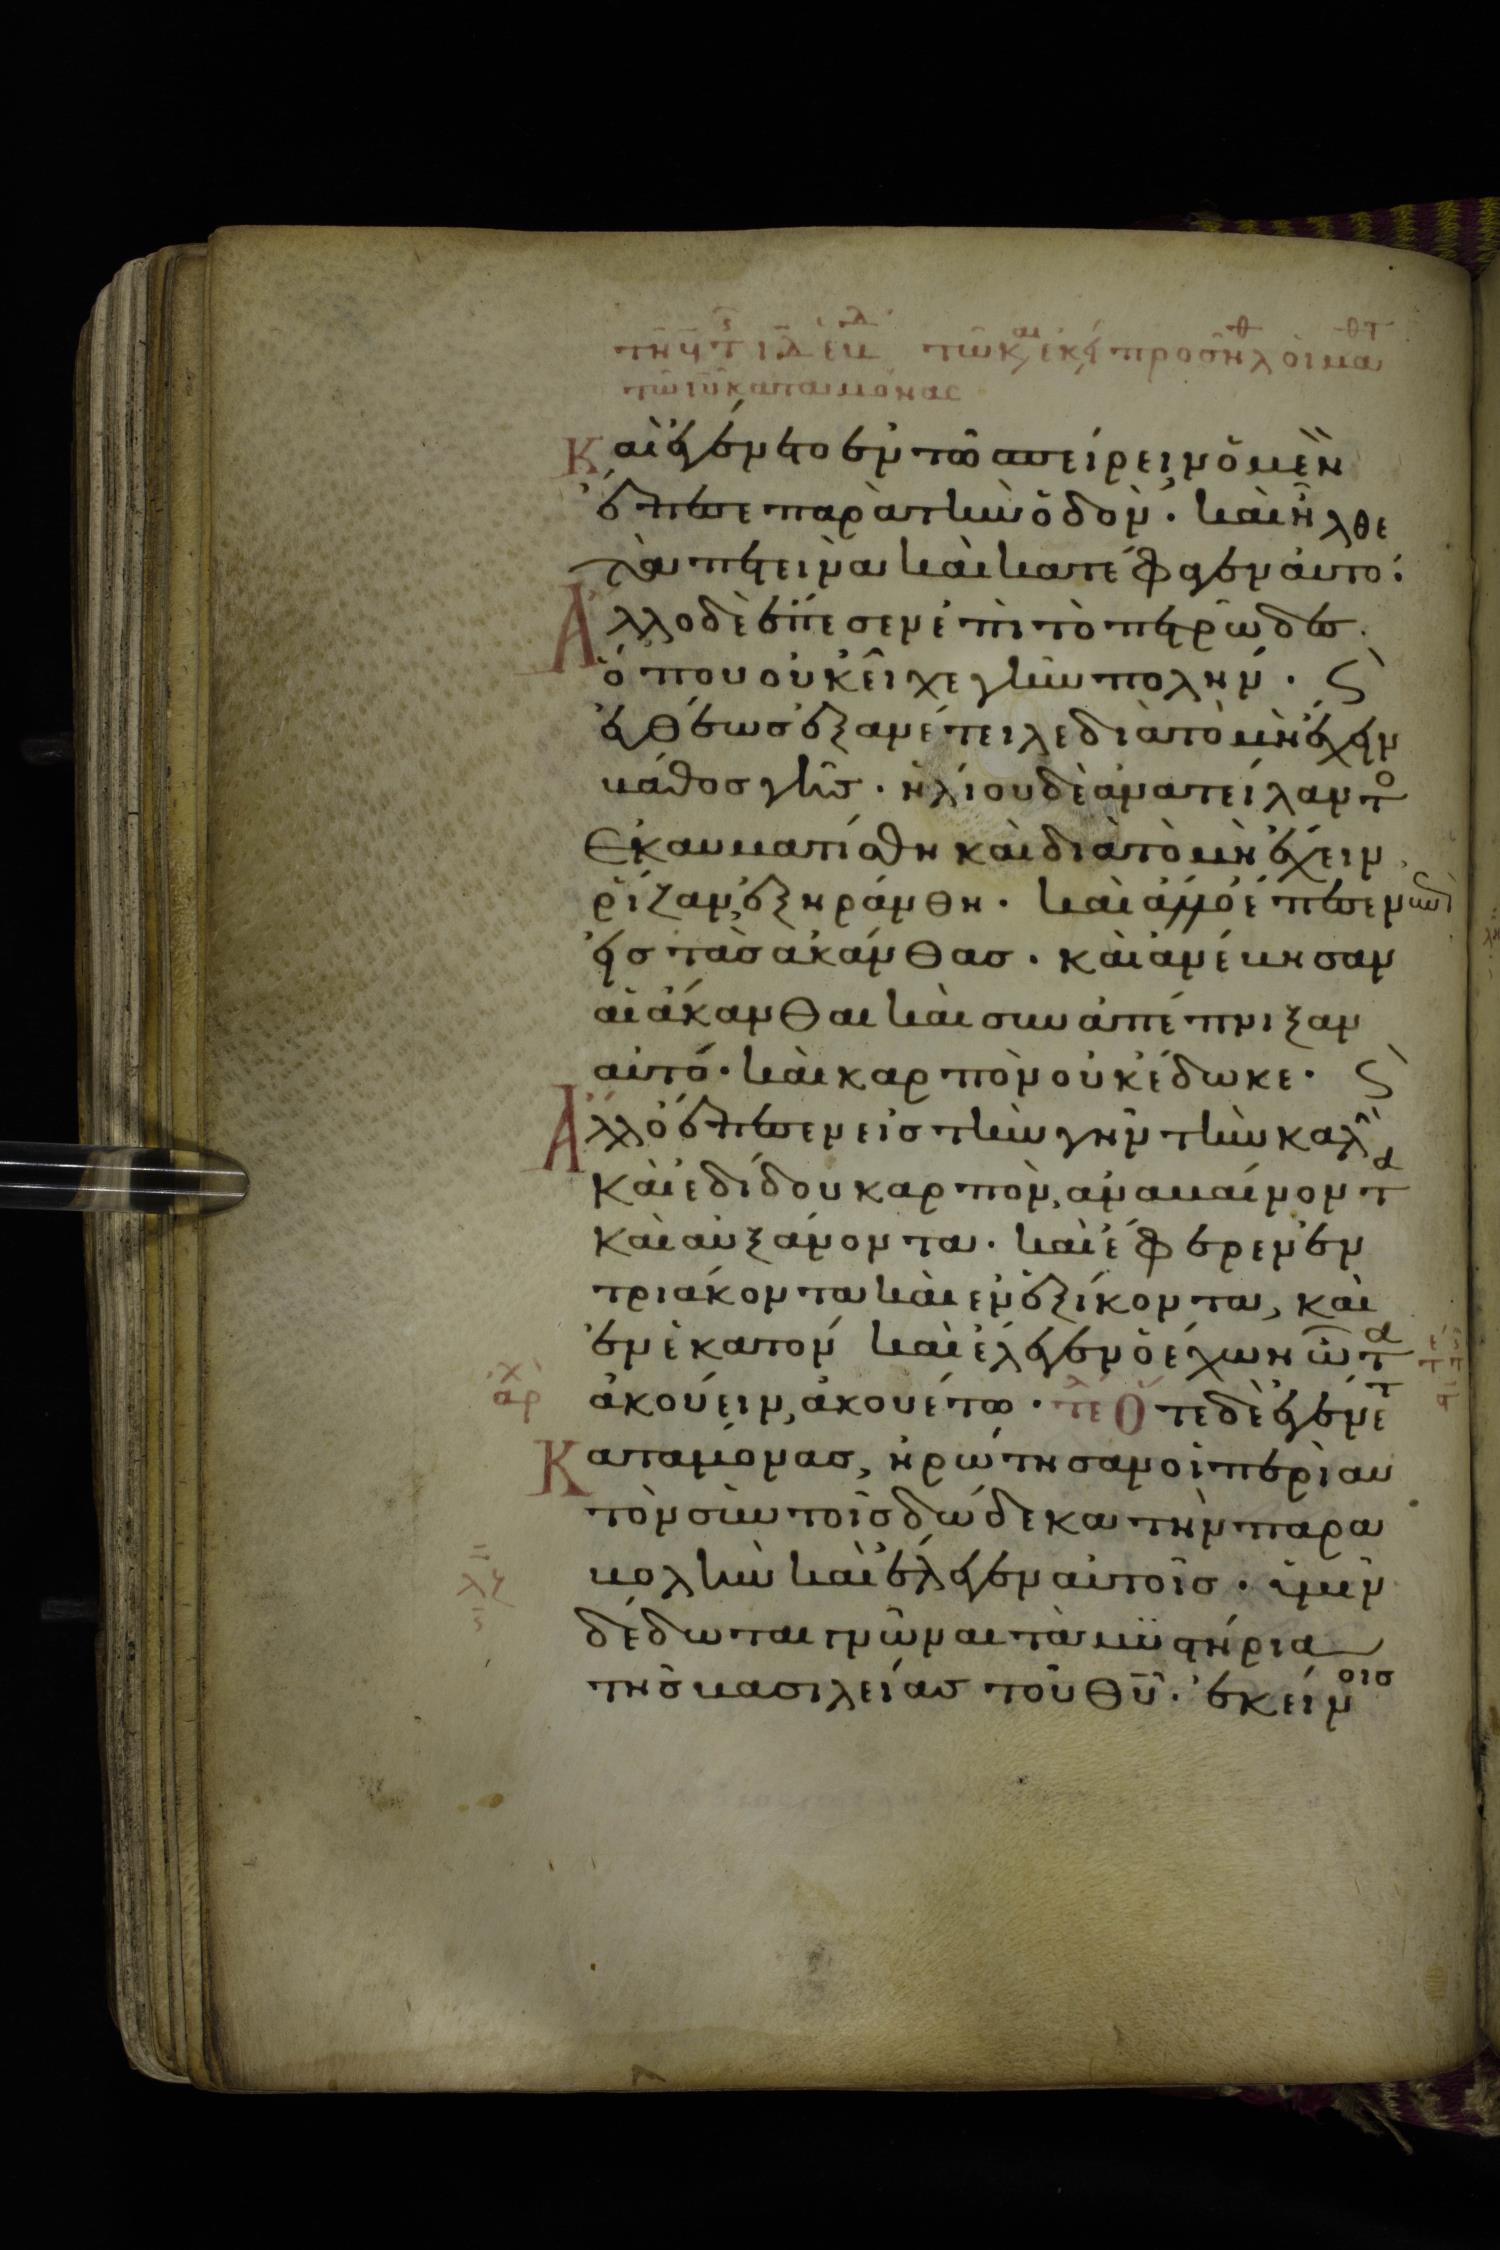 Καὶ ἐγένετο ἐν τῶ σπείρειν ὃ μὲν
ἔπεσε παρὰ τὴν ὁδόν· καὶ ἦλθε
τὰ πετεινὰ καὶ κατέφαγεν αὐτό·
Ἄλλο δὲ ἔπεσεν ἐπὶ τὸ πετρῶδες·
ὅπου οὐκ εἶχε γῆν πολήν·
εὐθέως ἐξανέτειλε διὰ τὸ μὴ ἔχειν
βάθος γῆς· ἡλίου δὲ ἀνατείλαντο
Ἐκαυματίσθη καὶ διὰ τὸ μὴ ἔχειν
ῥίζαν, ἐξηράνθη· καὶ ἄλλο ἔπεσεν
εἰς τὰς ἀκάνθας· καὶ ἀνέβησαν
αἱ ἄκανθαι καὶ συναπέπνιξαν
αὐτό· καὶ καρπὸν οὐκ ἔδωκε·
Ἄλλο ἔπεσεν εἰς τὴν γῆν τὴν καλὴ
καὶ ἐδίδου καρπὸν, ἀναβαίνοντα
καὶ αὐξάνοντα· καὶ ἔφερεν ἐν
τριάκοντα καὶ ἐν ἐξίκοντα, καὶ
ἐν ἑκατόν καὶ ἔλεγεν ὁ ἔχων ὦτα
ἀκούειν, ἀκουέτω· τε Ὅτε δὲ ἐγένετ
Καταμόνας, ἠρώτησαν οἱ περὶ αυ
τὸν σὺν τοῖς δώδεκα τὴν παρα
βολὴν καὶ ἔλεγεν αὐτοῖς· ὑμῖν
δέδωται γνῶναι τὰ μυστήρια
τῆς βασιλείας τοῦ θυ· ἐκείνοις